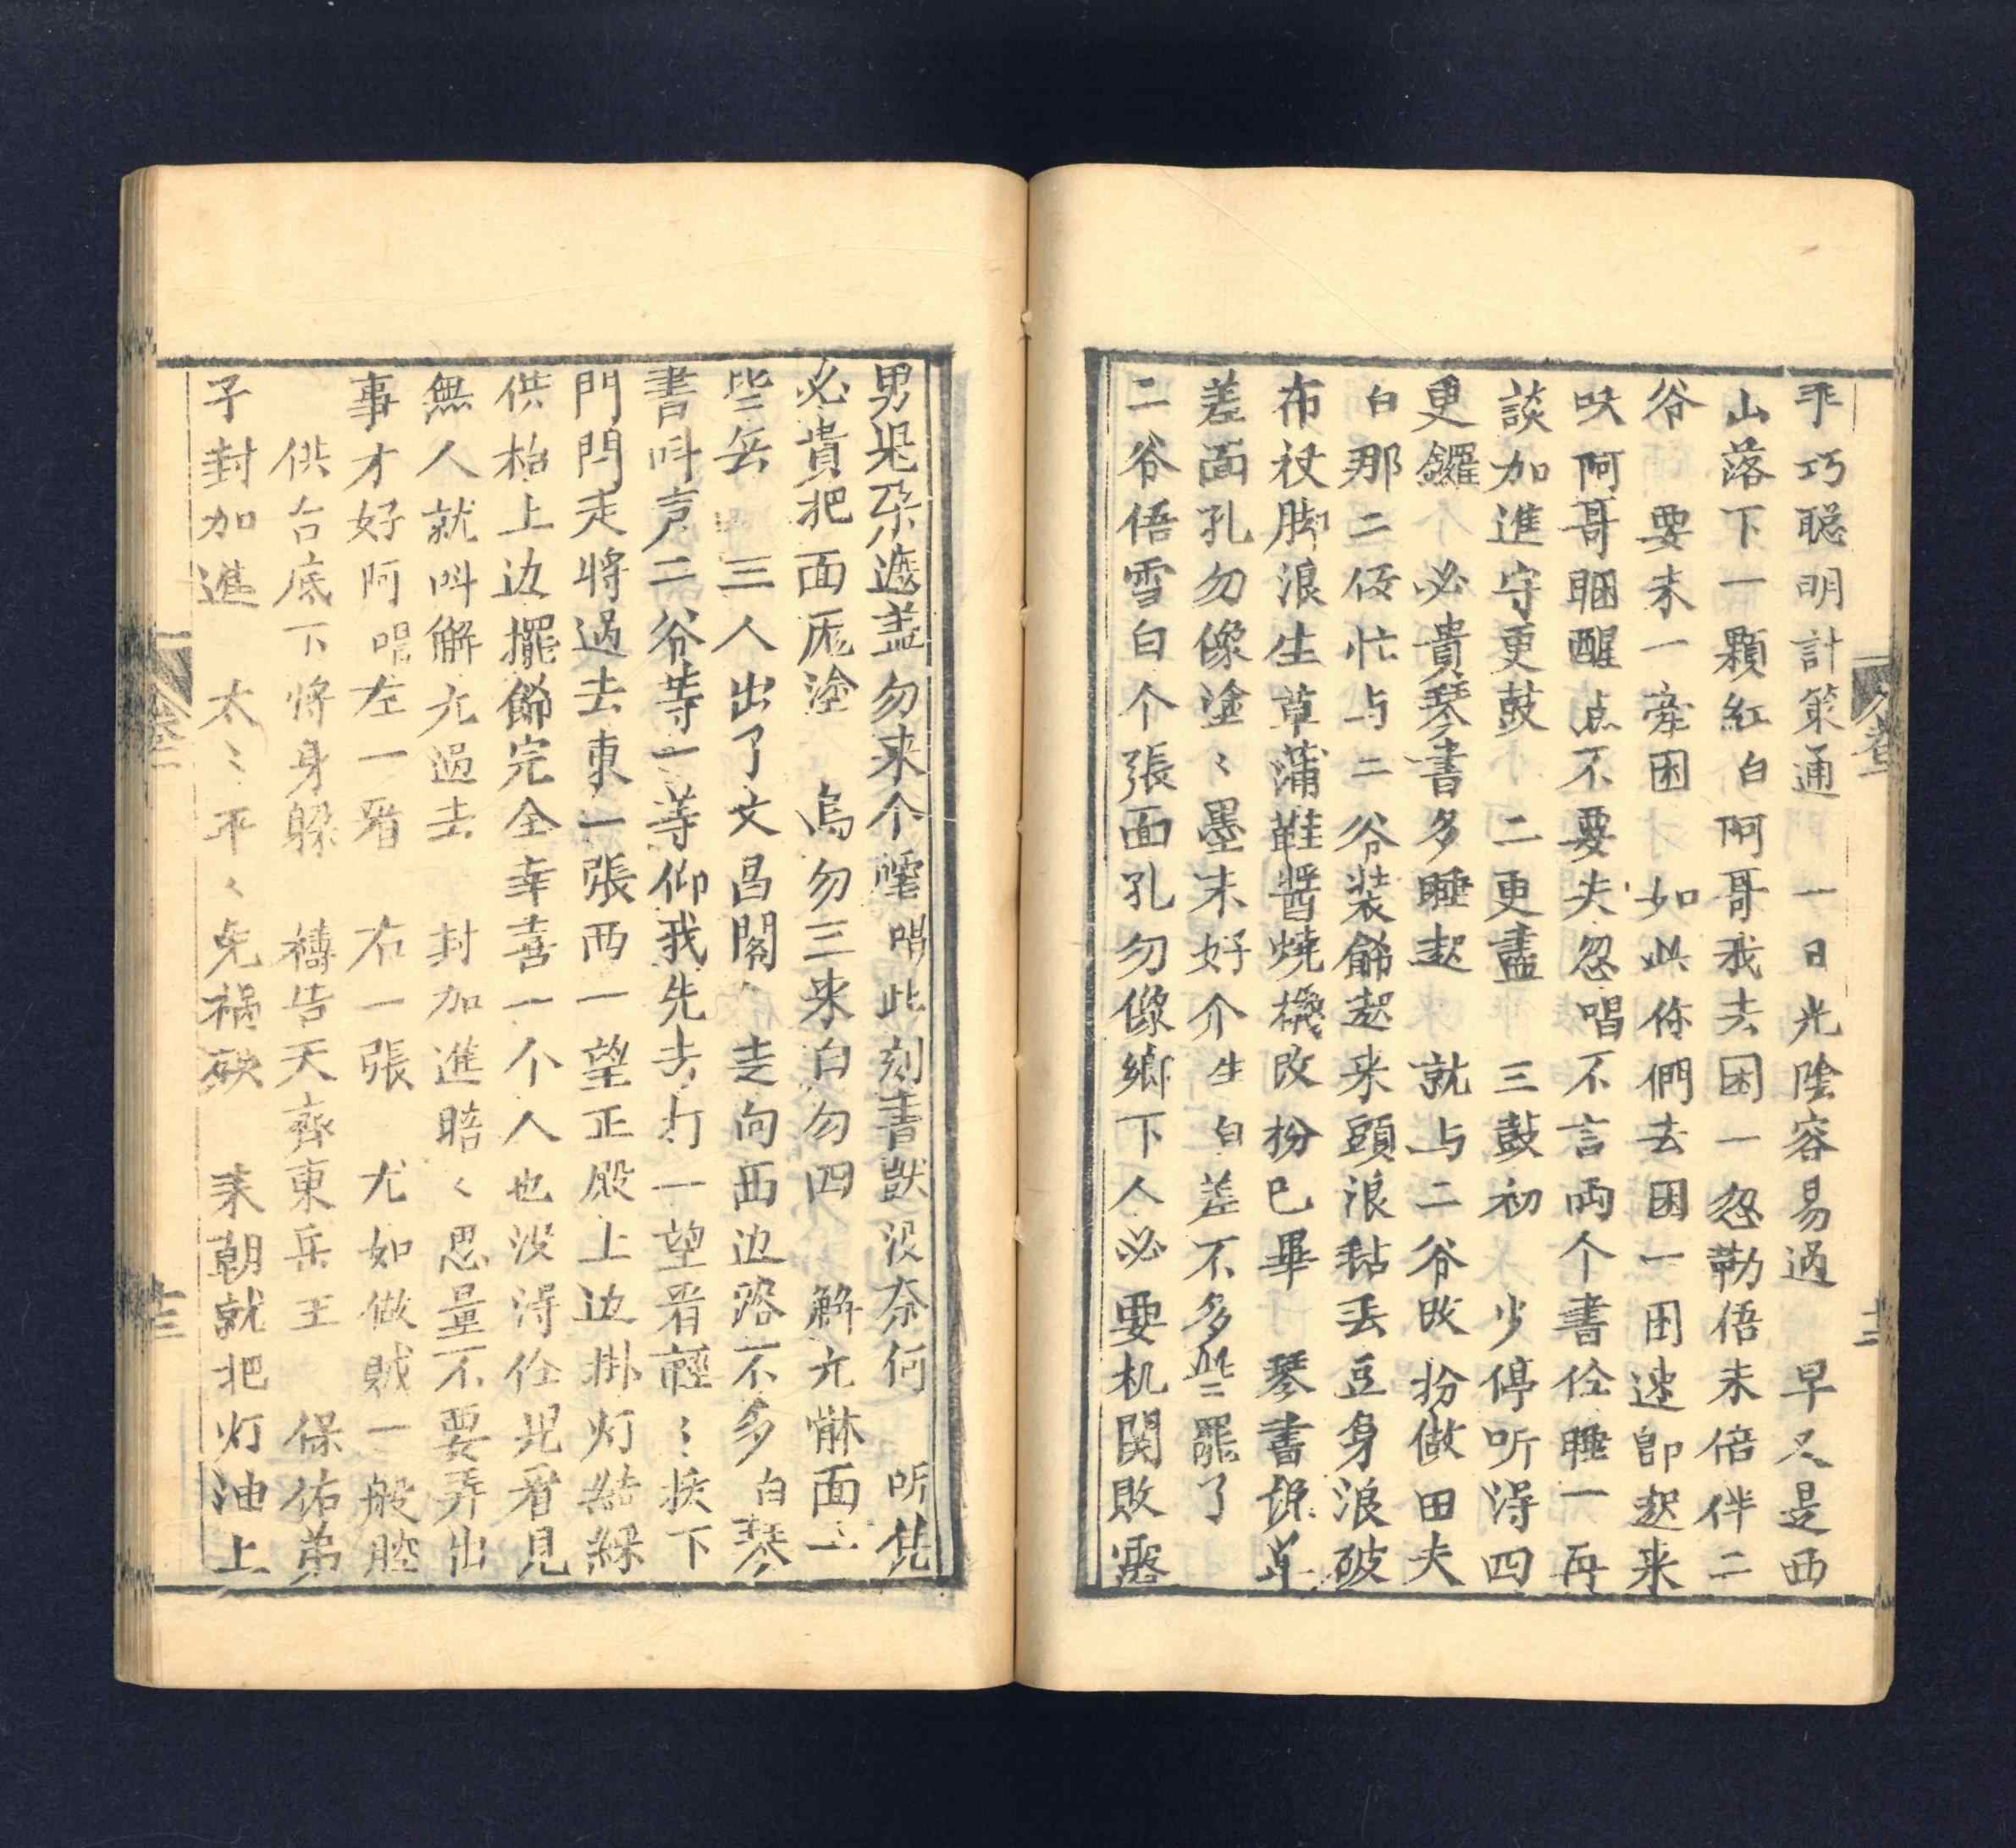 乖巧聪明計策通　一日光陰容易過　早又是西
山落下一顆紅白阿哥我去困一忽勒悟来倍伴二
爷　要来一牽困　如此你們去困一困速即起来
呋阿哥睏醒点不要失忽唱不言両个書伫睡一再
談加進守更鼓　二更盡　三鼓初　少停听淂四
更鑼　必貴琴書多睡起　就与二爷改扮做田夫
白那二位忙与二爷装飾起来頭浪黏丢豆身浪破
布衩脚浪生草蒲鞋醬燒機改扮已畢　琴書説草
差面孔勿像塗〻墨末好介生白差不多些罷了
二爷悟雪白个張面孔勿像鄉下人必要机関敗露
男児朶遮盖勿来个嚜唱此刻書獃没奈何　听凭
必貴把面龐塗　烏勿三来白勿四　觧元黹面一
些兵　三人出了文昌閣　走向西边路不多白琴
書叫声二爷等一等仰我先去打一望看輕〻挨下
門閂走将過去東一張西一望正殿上边掛灯結綵
供枱上边擺飾完全幸喜一个人也没淂伫児看見
無人就叫解元過去　封加進暗〻思量不要弄出
事才好阿唱左一看　右一張　尤如做賊一般腔
供台底下将身躲　禱告天齊東岳王　保佑弟
子封加進　太〻平〻免禍殃　来朝就把灯油上
卷二
十三